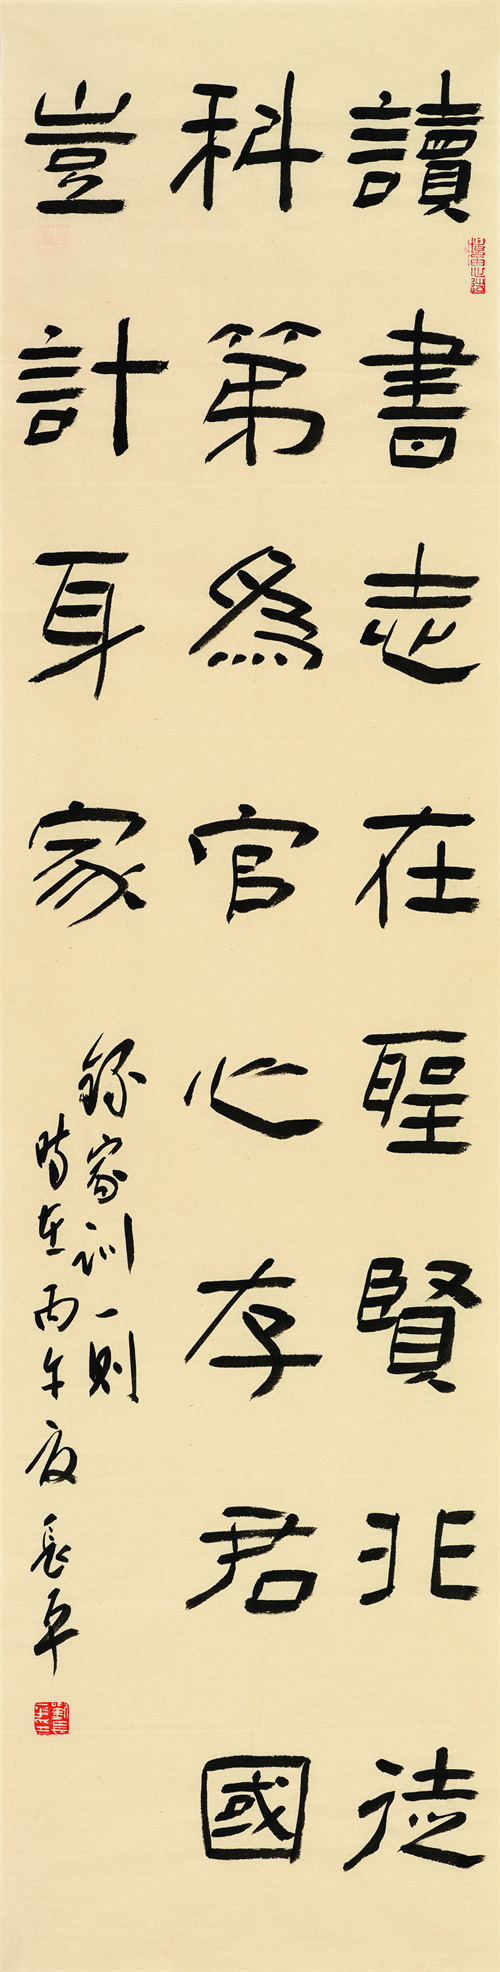 讀書志在聖賢非徒
科第爲官心存君國
豈計身家
錄家訓一則
時在丙午夏長平